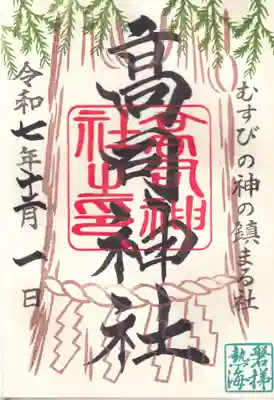 むすびの神の鎮まる社
高司神社
高司神
社之印
令和七年十二月一日
磐梯
熱海